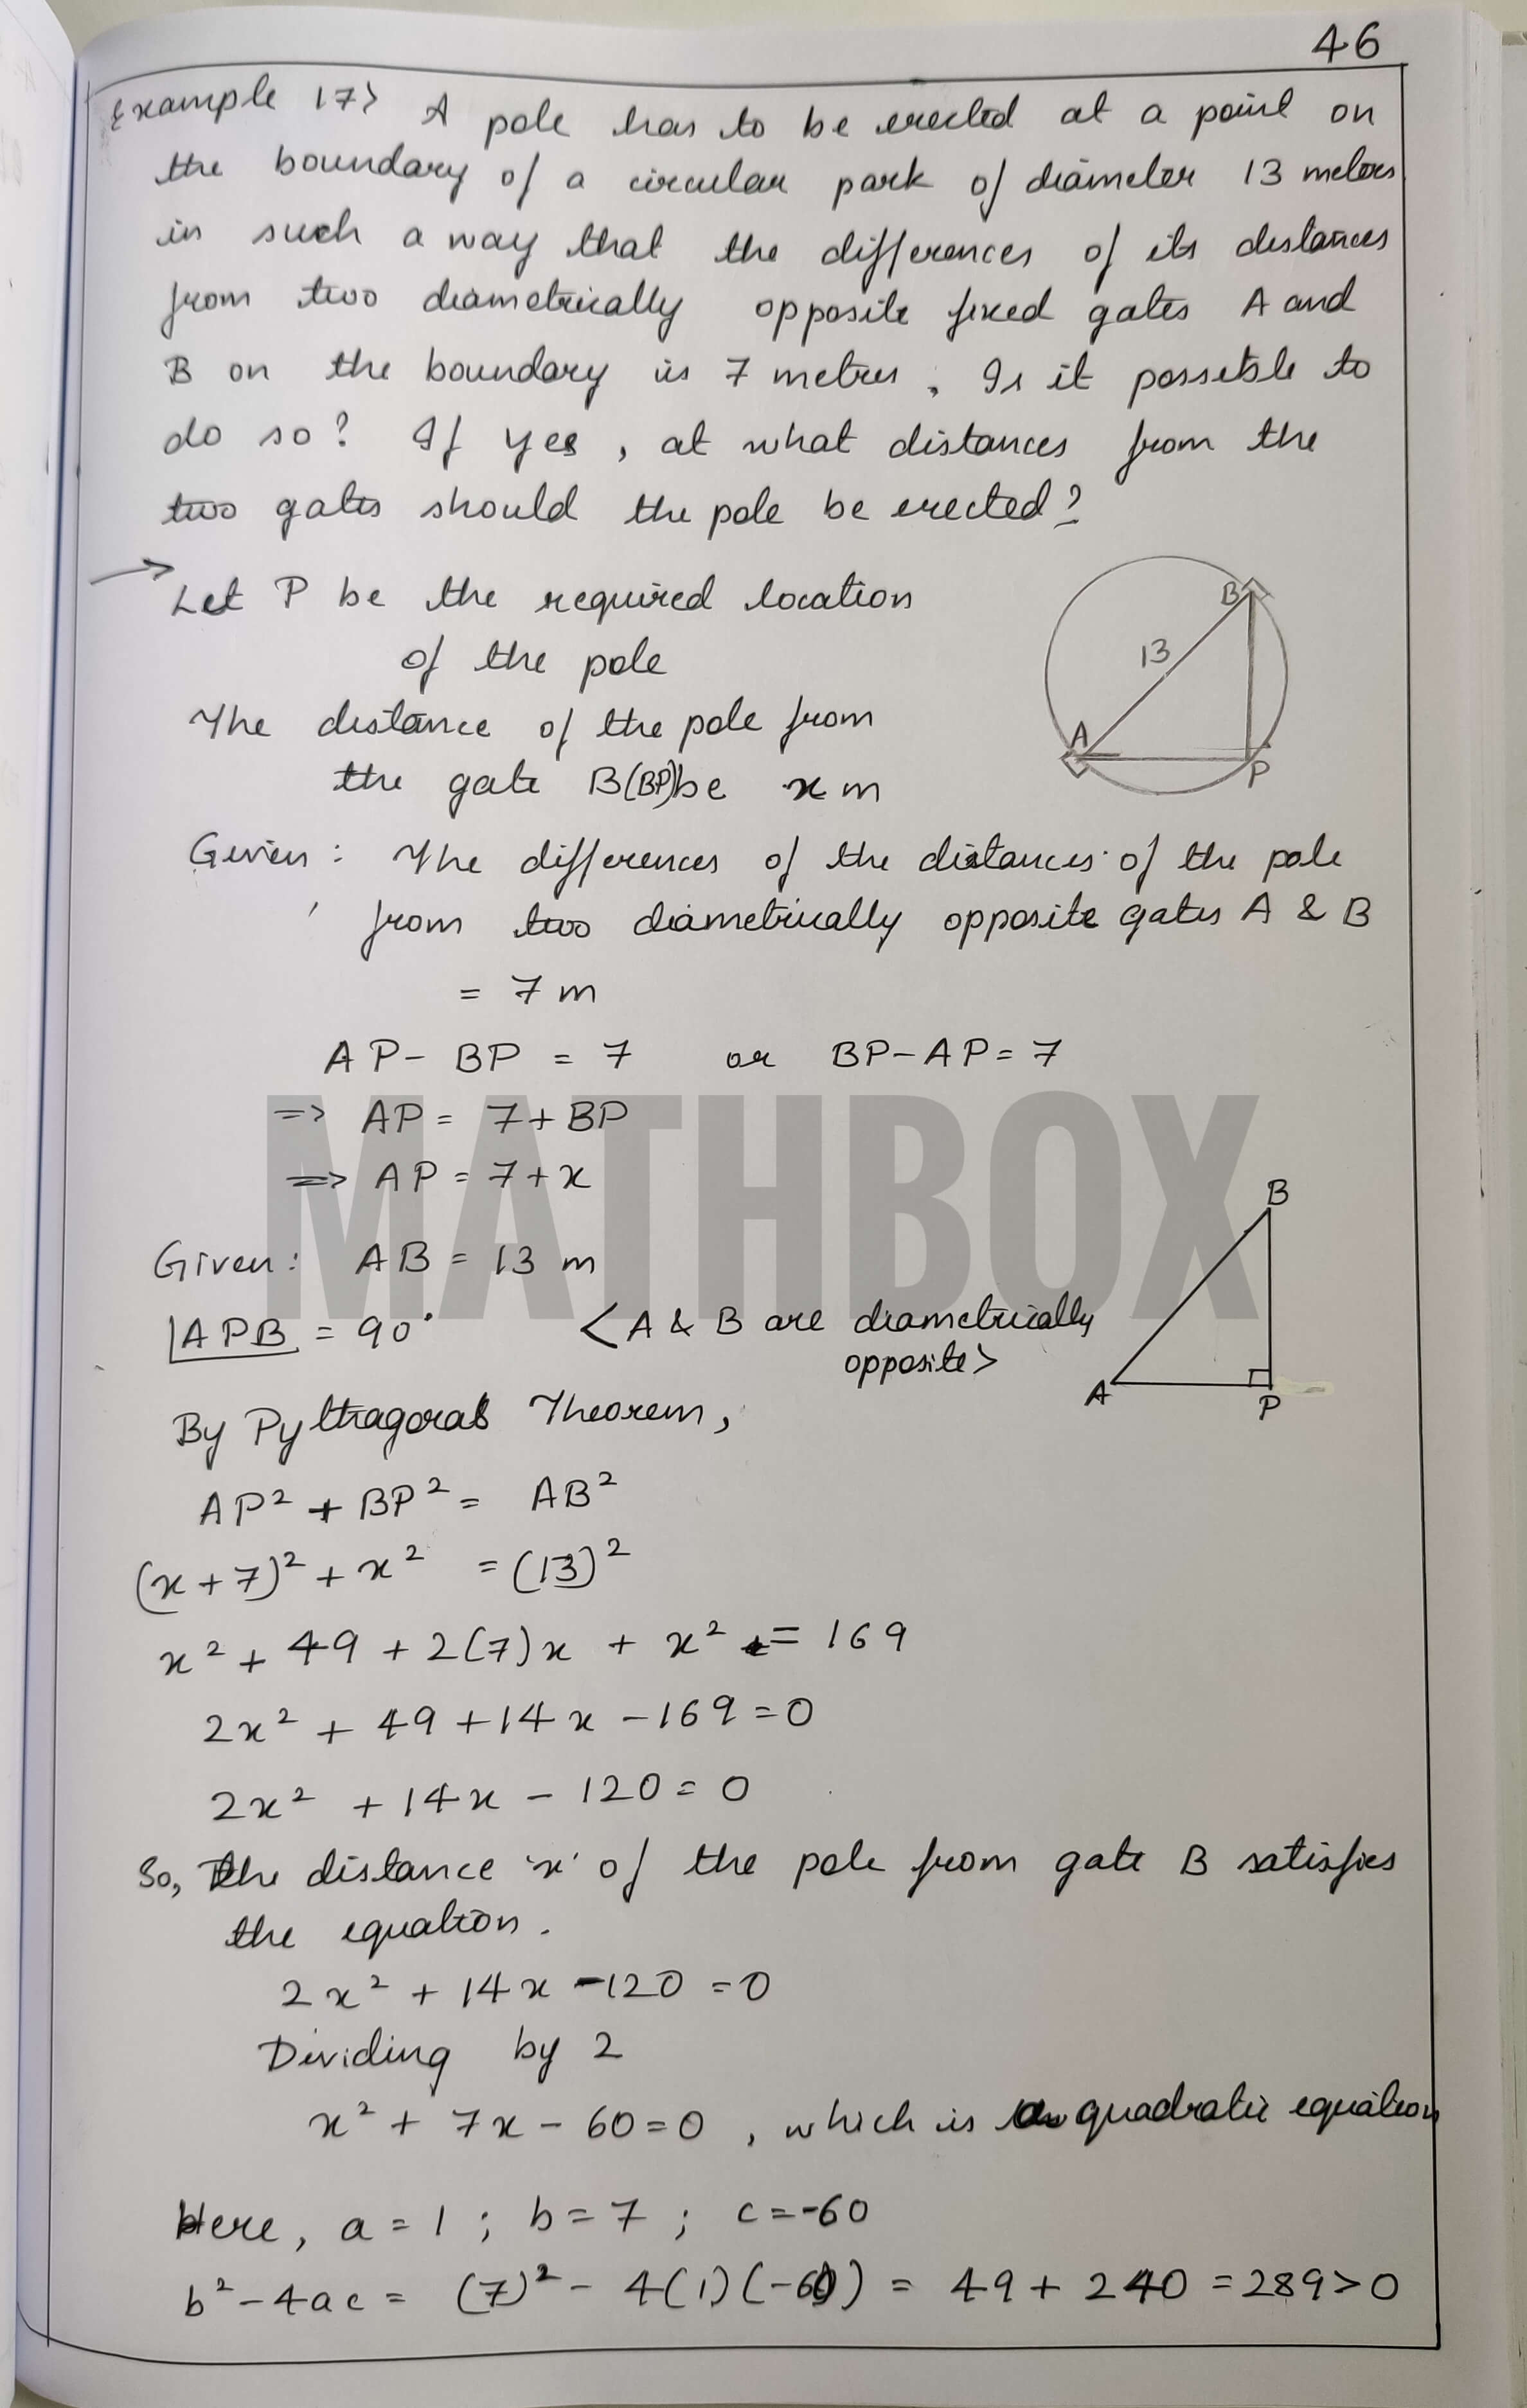 46
Example 17> A pole has to be erected at a point on
the boundary of a circular park of diameter 13 meters
in such a way that the differences of its distances
from two diametrically opposite fixed gates A and
B on the boundary is 7 metres. Is it possible to
do so? If yes, at what distances from the
two gates should the pole be erected?
→ Let P be the required location
of the pole
The distance of the pole from
the gate B(BP) be x m
B
13
A
P
Given: The differences of the distances of the pole
from two diametrically opposite gates A & B
= 7 m
AP - BP = 7 or BP - AP = 7
=> AP = 7 + BP
=> AP = 7 + x
MATHBOX
Given: AB = 13 m
∠APB = 90° <A & B are diametrically
opposite>
B
A
P
By Pythagoras Theorem,
AP² + BP² = AB²
(x + 7)² + x² = (13)²
x² + 49 + 2(7)x + x² = 169
2x² + 49 + 14x - 169 = 0
2x² + 14x - 120 = 0
So, the distance 'x' of the pole from gate B satisfies
the equation.
2x² + 14x - 120 = 0
Dividing by 2
x² + 7x - 60 = 0, which is a quadratic equation
Here, a = 1; b = 7; c = -60
b² - 4ac = (7)² - 4(1)(-60) = 49 + 240 = 289 > 0